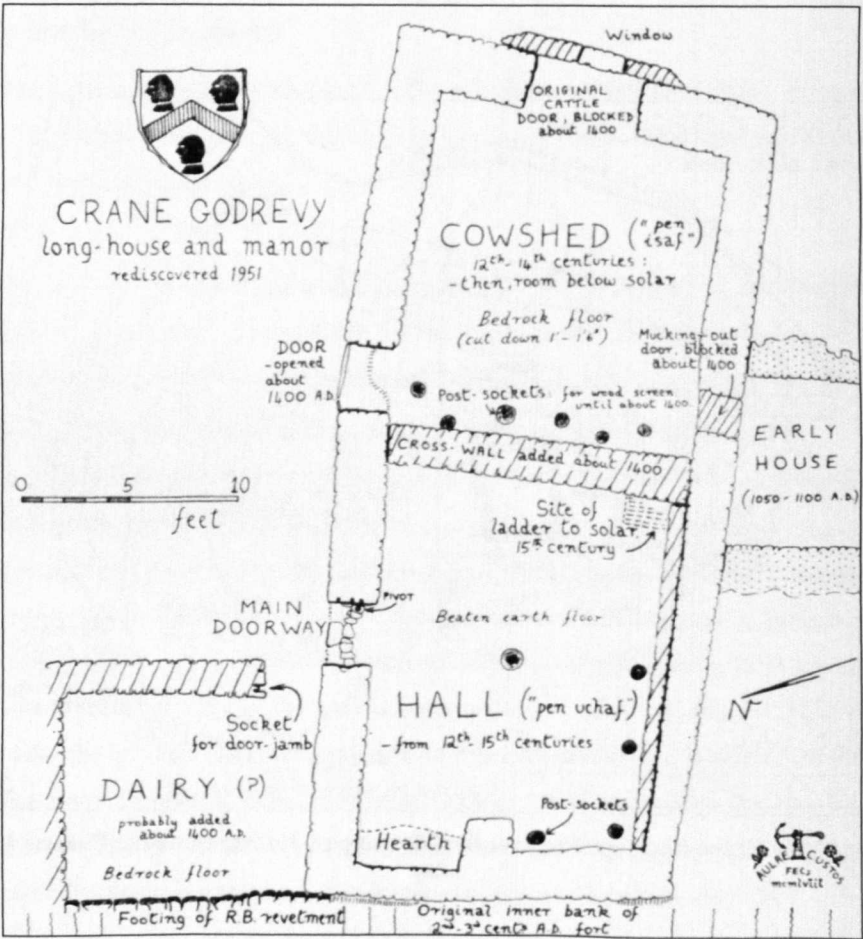 Window
ORIGINAL
CATTLE
DOOR, BLOCKED
about 1400
CRANE GODREVY
long-house and manor
rediscovered 1951
COWSHED ("pen isaf")
12th-14th centuries:
-then, room below solar
Bedrock floor
(cut down 1'-1'6")
Mucking-out
door, blocked
about 1400
DOOR
-opened
about
1400 A.D.
Post-sockets: for wood screen
until about 1400
CROSS-WALL added about 1400
EARLY
HOUSE
(1050-1100 A.D.)
0 5 10
feet
Site of
ladder to solar,
15th century
PIVOT
MAIN
DOORWAY
Beaten earth floor
N
HALL ("pen uchaf")
-from 12th-15th centuries
Socket
for door-jamb
DAIRY (?)
probably added
about 1400 A.D.
Bedrock floor
Post-sockets
Hearth
CUSTOS
FEC:
mcmlviii
Footing of R.B. revetment
Original inner bank of
2nd-3rd cents A.D. fort